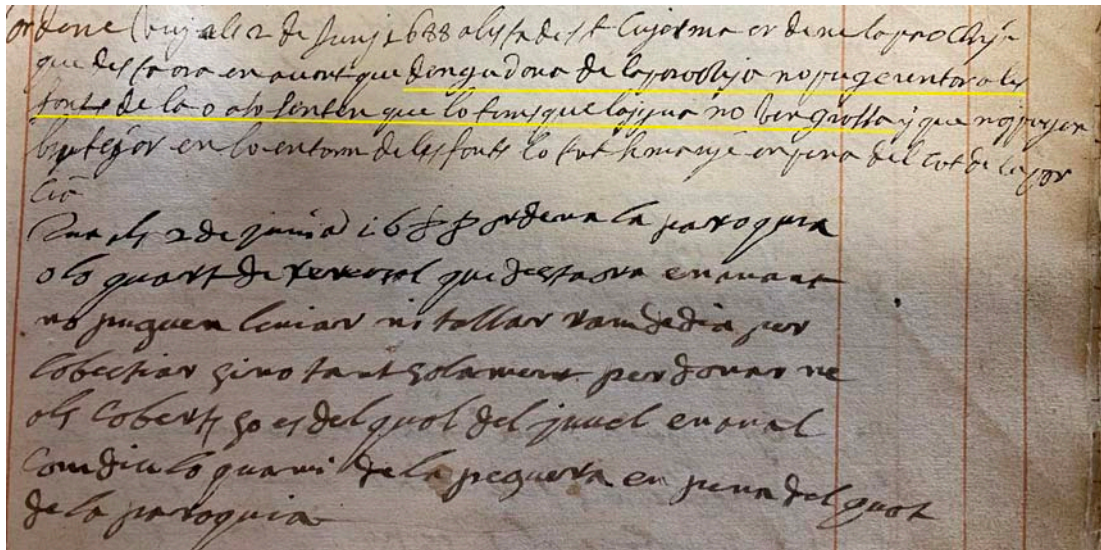 ordene buy als 2 de Junj 1688 a lis fa de st Cujerma er de ne la parochja
que desta ora en avant que denguna dona de la parochja no puge rentar a les
fonts de la o alo senten que lo tems que lajgua no ben grossa y que no pugen
en lo entorn de les fonts lo tot semanje en pena del cot de la por
cio
Vuy als 2 de juni 1688 ordena la paroquia
o lo quart de que desta ora en avant
no puguen leniar ni tallar ramda dia per
Cobectiar sino tant solament per donar ne
als Coberts so es del quol del juvel en aval
Com diu lo quami de la peguera en pena del quot
de la paroquia